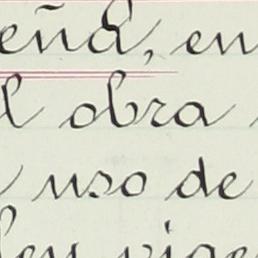 eña, en
l obra
uso de
ley vige